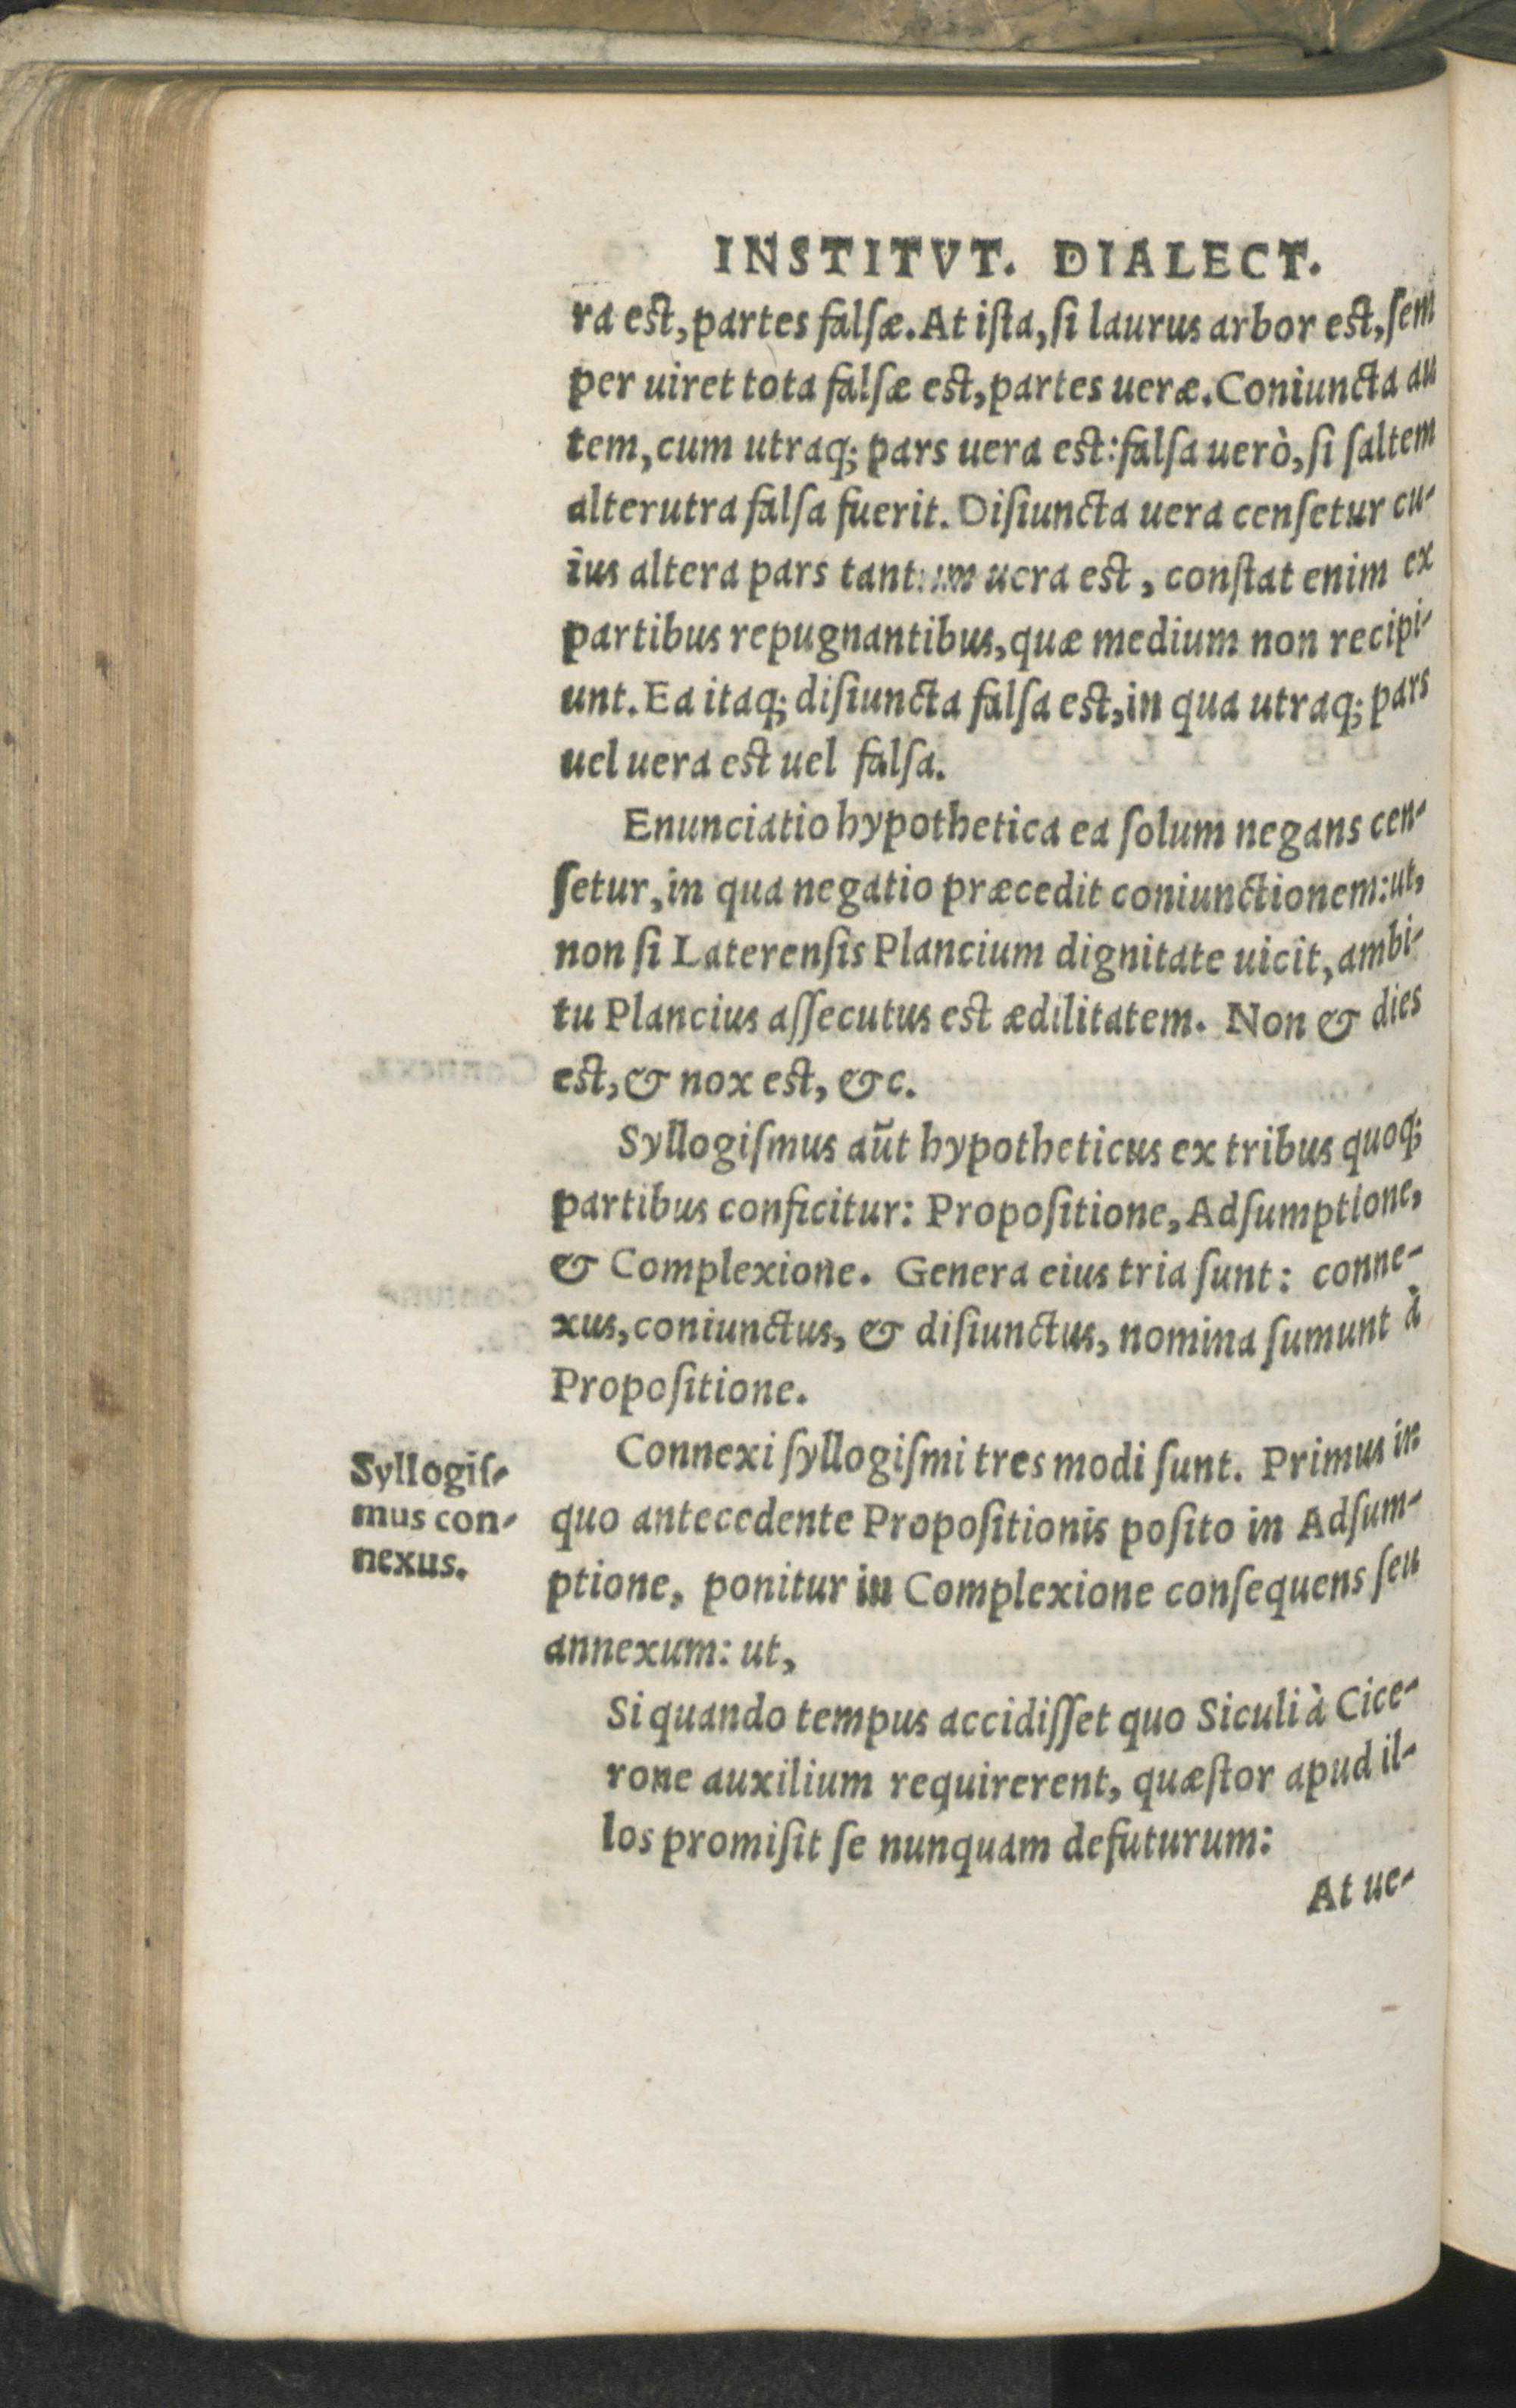 INSTITVT. DIALECT.
ra est, partes falſæ. At iſta, ſi laurus arbor est, ſem
per uiret tota falſæ est, partes ueræ. Coniuncta au
tem, cum utraq; pars uera est: falſa uerò, ſi ſaltem
alterutra falſa fuerit. Diſiuncta uera cenſetur cu-
ius altera pars tantum uera est, conſtat enim ex
partibus repugnantibus, quæ medium non recipi-
unt. Ea itaq; diſiuncta falſa est, in qua utraq; pars
uel uera est uel falſa.
Enunciatio hypothetica ea ſolum negans cen-
ſetur, in qua negatio præcedit coniunctionem: ut,
non ſi Laterenſis Plancium dignitate uicit, ambi-
tu Plancius aſſecutus est ædilitatem. Non & dies
est, & nox est, &c.
Syllogiſmus aũt hypotheticus ex tribus quoq;
partibus conficitur: Propoſitione, Adſumptione,
& Complexione. Genera eius tria ſunt: conne-
xus, coniunctus, & diſiunctus, nomina ſumunt à
Propoſitione.
Syllogiſ-
mus con-
nexus.
Connexi ſyllogiſmi tres modi ſunt. Primus in
quo antecedente Propoſitionis poſito in Adſum-
ptione, ponitur in Complexione conſequens ſeu
annexum: ut,
Si quando tempus accidiſſet quo Siculi à Cice-
rone auxilium requirerent, quæſtor apud il-
los promiſit ſe nunquam defuturum:
At ue-